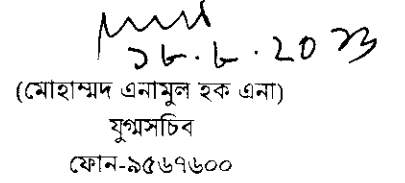 ১৮.৮.২০১৩
(মোহাম্মদ এনামুল হক এনা)
যুগ্মসচিব
ফোন-৯৫৬৭৬০০